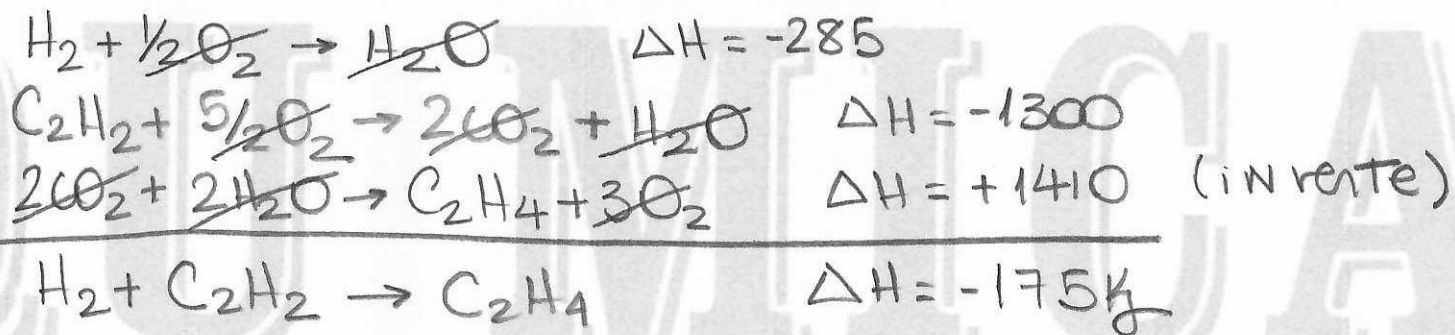 H₂ + 1/2O₂ → H₂O ΔH = -285
C₂H₂ + 5/2O₂ → 2CO₂ + H₂O ΔH = -1300
2CO₂ + 2H₂O → C₂H₄ + 3O₂ ΔH = +1410 (inverte)
H₂ + C₂H₂ → C₂H₄ ΔH = -175 kJ